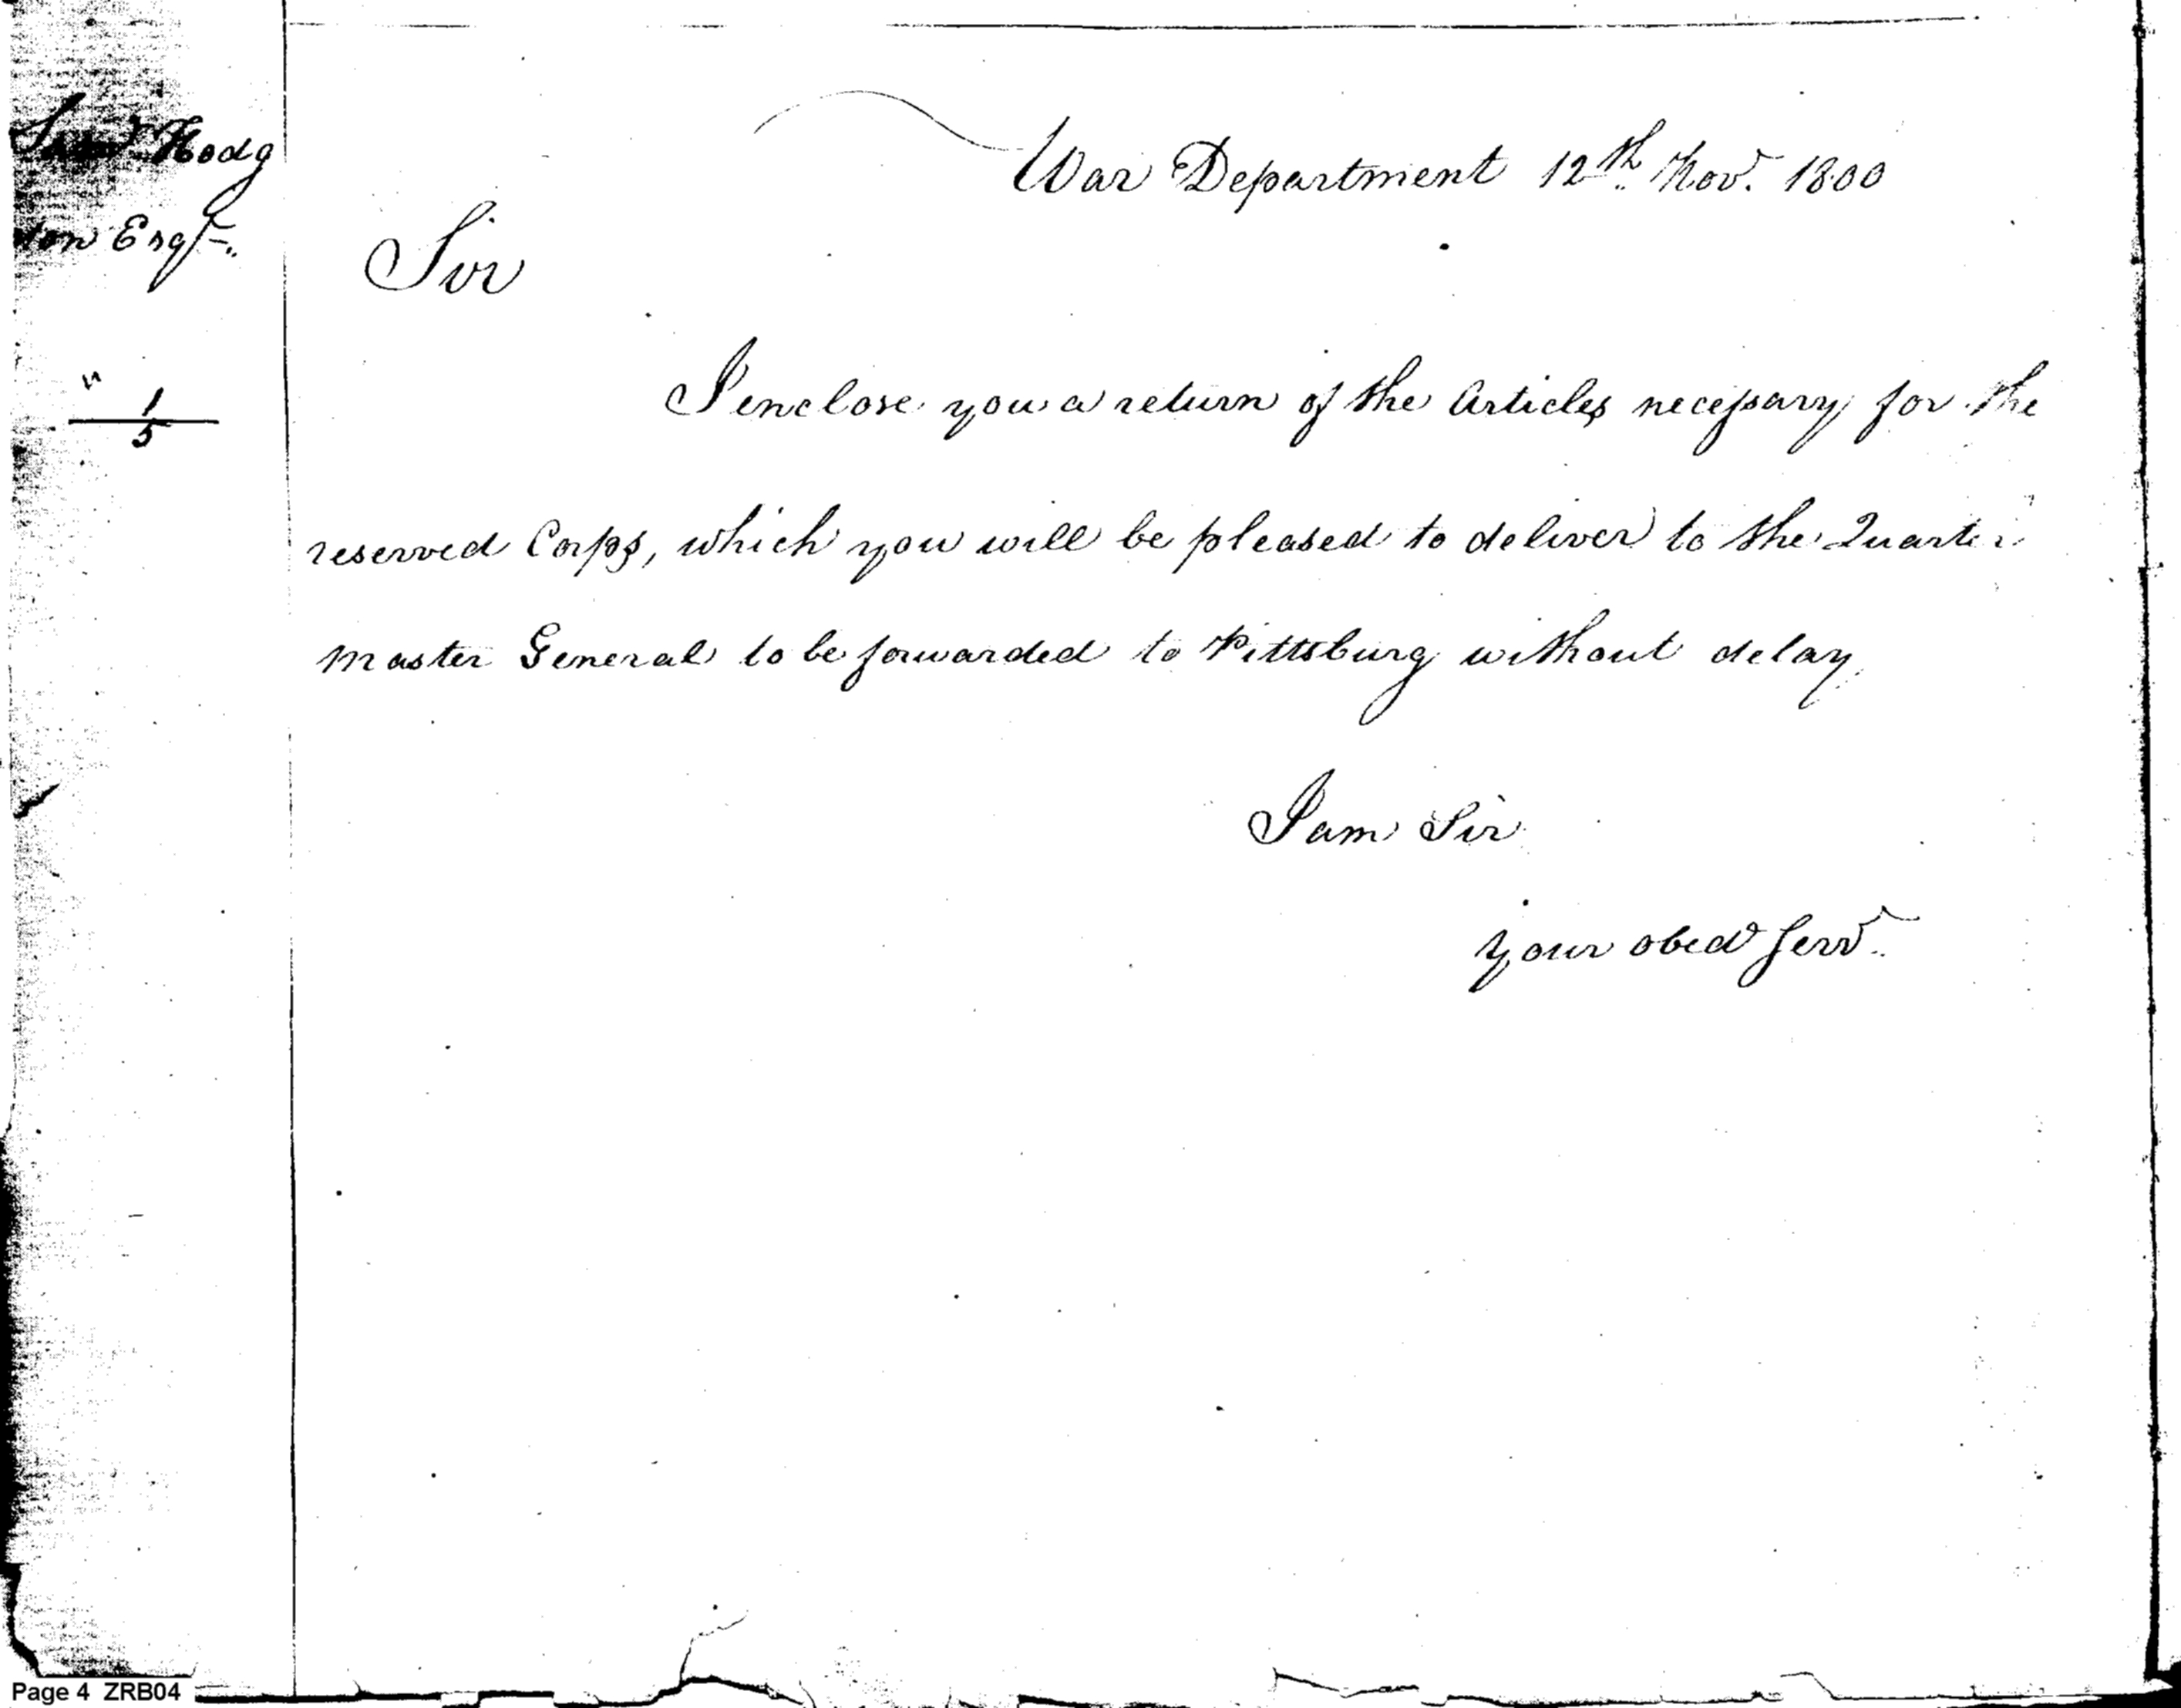 Sam.l Hodg
don Esqr.
1
5
War Department 12th. Nov.r 1800
Sir
I enclose you a return of the Articles necessary for the
reserved Corps, which you will be pleased to deliver to the Quarter
master General to be forwarded to Pittsburg without delay.
I am Sir
your obed Serv.t
Page 4 ZRB04